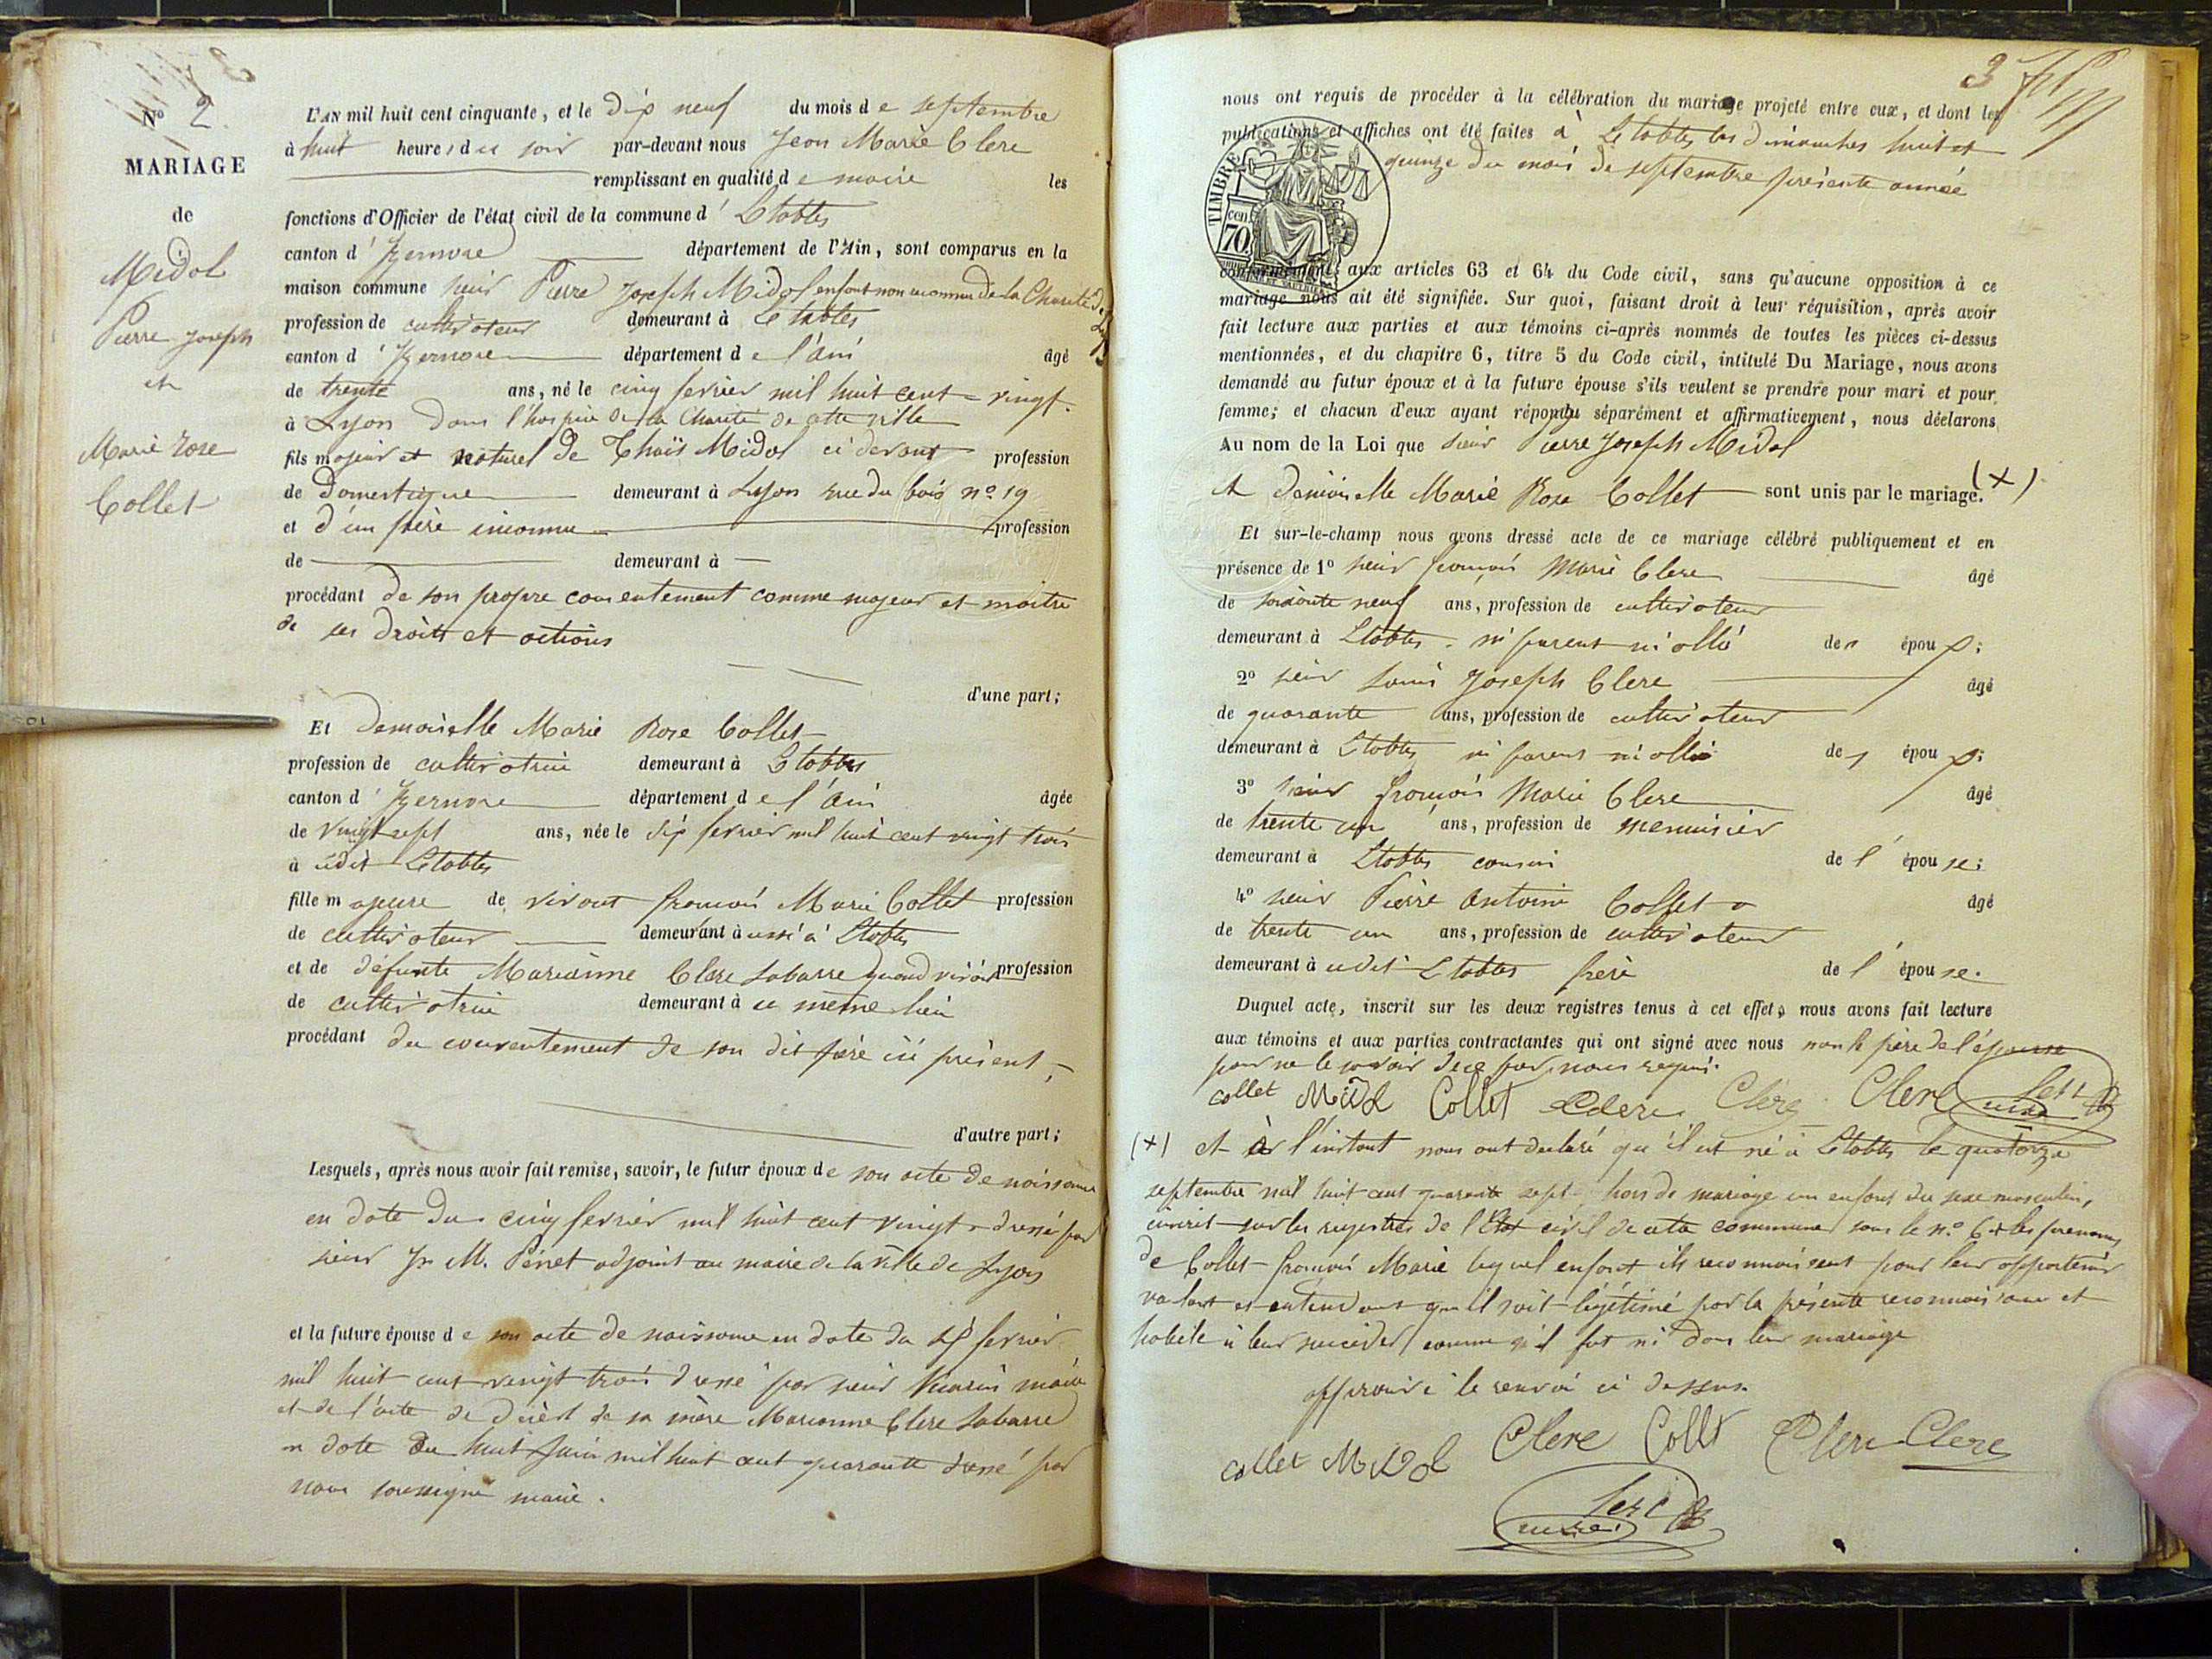 N° 2
MARIAGE
de
Midol
Pierre Joseph
et
Marie Rose
Collet
L'AN mil huit cent cinquante, et le dix neuf du mois de septembre
à huit heures du soir par-devant nous Jean Marie Clerc
remplissant en qualité de maire les
fonctions d'Officier de l'état civil de la commune d' Etables
canton d' Izernore département de l'Ain, sont comparus en la
maison commune sieur Pierre Joseph Midol enfant non reconnu de la Charité de
profession de cultivateur demeurant à Etables
canton d' Izernore département de l'ain âgé
de trente ans, né le cinq fevrier mil huit cent vingt
à Lyon dans l'hospice de la Charité de cette ville
fils majeur et naturel de Thaïs Midol ci devant profession
de domestique demeurant à Lyon rue du bois n° 19
et d'un père inconnu profession
de demeurant à
procédant de son propre consentement comme majeur et maitre
de ses droits et actions
d'une part;
Et demoiselle Marie Rose Collet
profession de cultivatrice demeurant à Etables
canton d' Izernore département de l'ain âgée
de vingt sept ans, née le six fevrier mil huit cent vingt trois
à udit Etables
fille majeure de vivant françois Marie Collet profession
de cultivateur demeurant à ussi à Etables
et de défunte Marianne Clerc Labarre quand vivait profession
de cultivatrice demeurant à ce même lieu
procédant du consentement de son dit père ici présent,
d'autre part;
Lesquels, après nous avoir fait remise, savoir, le futur époux de son acte de naissance
en date du cinq fevrier mil huit cent vingt dressé par
sieur Jn M. Perret adjoint au maire de la ville de Lyon
et la future épouse de son acte de naissance en date du six fevrier
mil huit cent vingt trois dressé par sieur maire
et de l'acte de décès de sa mère Marianne Clerc Labarre
en date du huit juin mil huit cent quarante dressé par
nous soussigné maire.
3
nous ont requis de procéder à la célébration du mariage projeté entre eux, et dont les
publications et affiches ont été faites à Etables les dimanches huit et
quinze du mois de septembre présente année
TIMBRE
70 cen
conformément aux articles 63 et 64 du Code civil, sans qu'aucune opposition à ce
mariage nous ait été signifiée. Sur quoi, faisant droit à leur réquisition, après avoir
fait lecture aux parties et aux témoins ci-après nommés de toutes les pièces ci-dessus
mentionnées, et du chapitre 6, titre 5 du Code civil, intitulé Du Mariage, nous avons
demandé au futur époux et à la future épouse s'ils veulent se prendre pour mari et pour
femme; et chacun d'eux ayant répondu séparément et affirmativement, nous déclarons
Au nom de la Loi que sieur Pierre Joseph Midol
et demoiselle Marie Rose Collet sont unis par le mariage. (X)
Et sur-le-champ nous avons dressé acte de ce mariage célébré publiquement et en
présence de 1° sieur françois Marie Clerc âgé
de soixante neuf ans, profession de cultivateur
demeurant à Etables ni parent ni allié des époux;
2° sieur Louis Joseph Clerc âgé
de quarante ans, profession de cultivateur
demeurant à Etables ni parent ni allié des époux;
3° sieur françois Marie Clerc âgé
de trente un ans, profession de menuisier
demeurant à Etables cousin de l'épouse;
4° sieur Pierre Antoine Collet âgé
de trente un ans, profession de cultivateur
demeurant à udit Etables frère de l'épouse.
Duquel acte, inscrit sur les deux registres tenus à cet effet, nous avons fait lecture
aux témoins et aux parties contractantes qui ont signé avec nous non le père de l'épouse
pour ne le savoir de ce par nous requis.
collet Midol Collet Clerc Clerc Clerc Clerc maire
(X) et à l'instant nous ont declaré qu'il est né à Etables le quatorze
septembre mil huit cent quarante sept hors de mariage un enfant du sexe masculin,
inscrit sur les registres de l'Etat civil de cette commune sous le n° 6 et les prenoms
de Collet françois Marie lequel enfant ils reconnaissent pour leur appartenir
voulant et entendant qu'il soit légitimé par la présente reconnaissance et
habile à leur succéder comme s'il fut né dans leur mariage
approuvé le renvoi ci dessus
collet Midol Clerc Collet Clerc Clerc
Clerc
maire